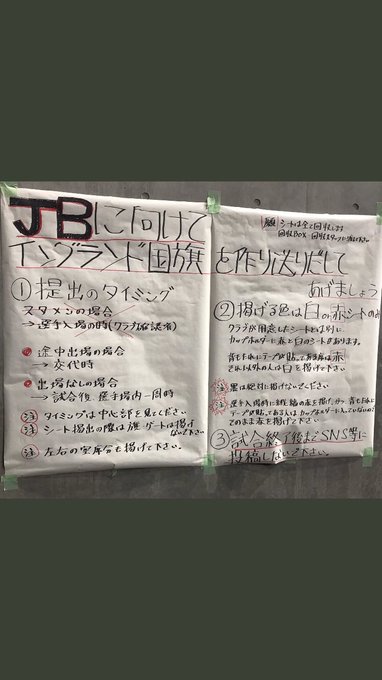 JBに向けて
イングランド国旗を作り送りだして
あげましょう
願 シートは全て回収します
①提出のタイミング
スタメンの場合
→選手入場の時(クラブ確認済)
途中出場の場合
→交代時
出場なしの場合
→試合後 選手場内一周時
注 タイミングは中心部を見てください
注 シート提出の際は旗・ゲートは掲げ
ないで下さい
注 左右の空席分も掲げて下さい。
②掲げる色は白か赤シートのみ
クラブが用意したシートとは別に
カップホルダーに赤と白のシートがあります。
背もたれにテープが貼ってある席は赤
それ以外の人は白を掲げて下さい
注 黒は絶対に掲げないでください
テープが貼ってある人はカップホルダーに入っていないので
そのまま赤を掲げて下さい
③試合終了後までSNS等に
投稿しないで下さい。